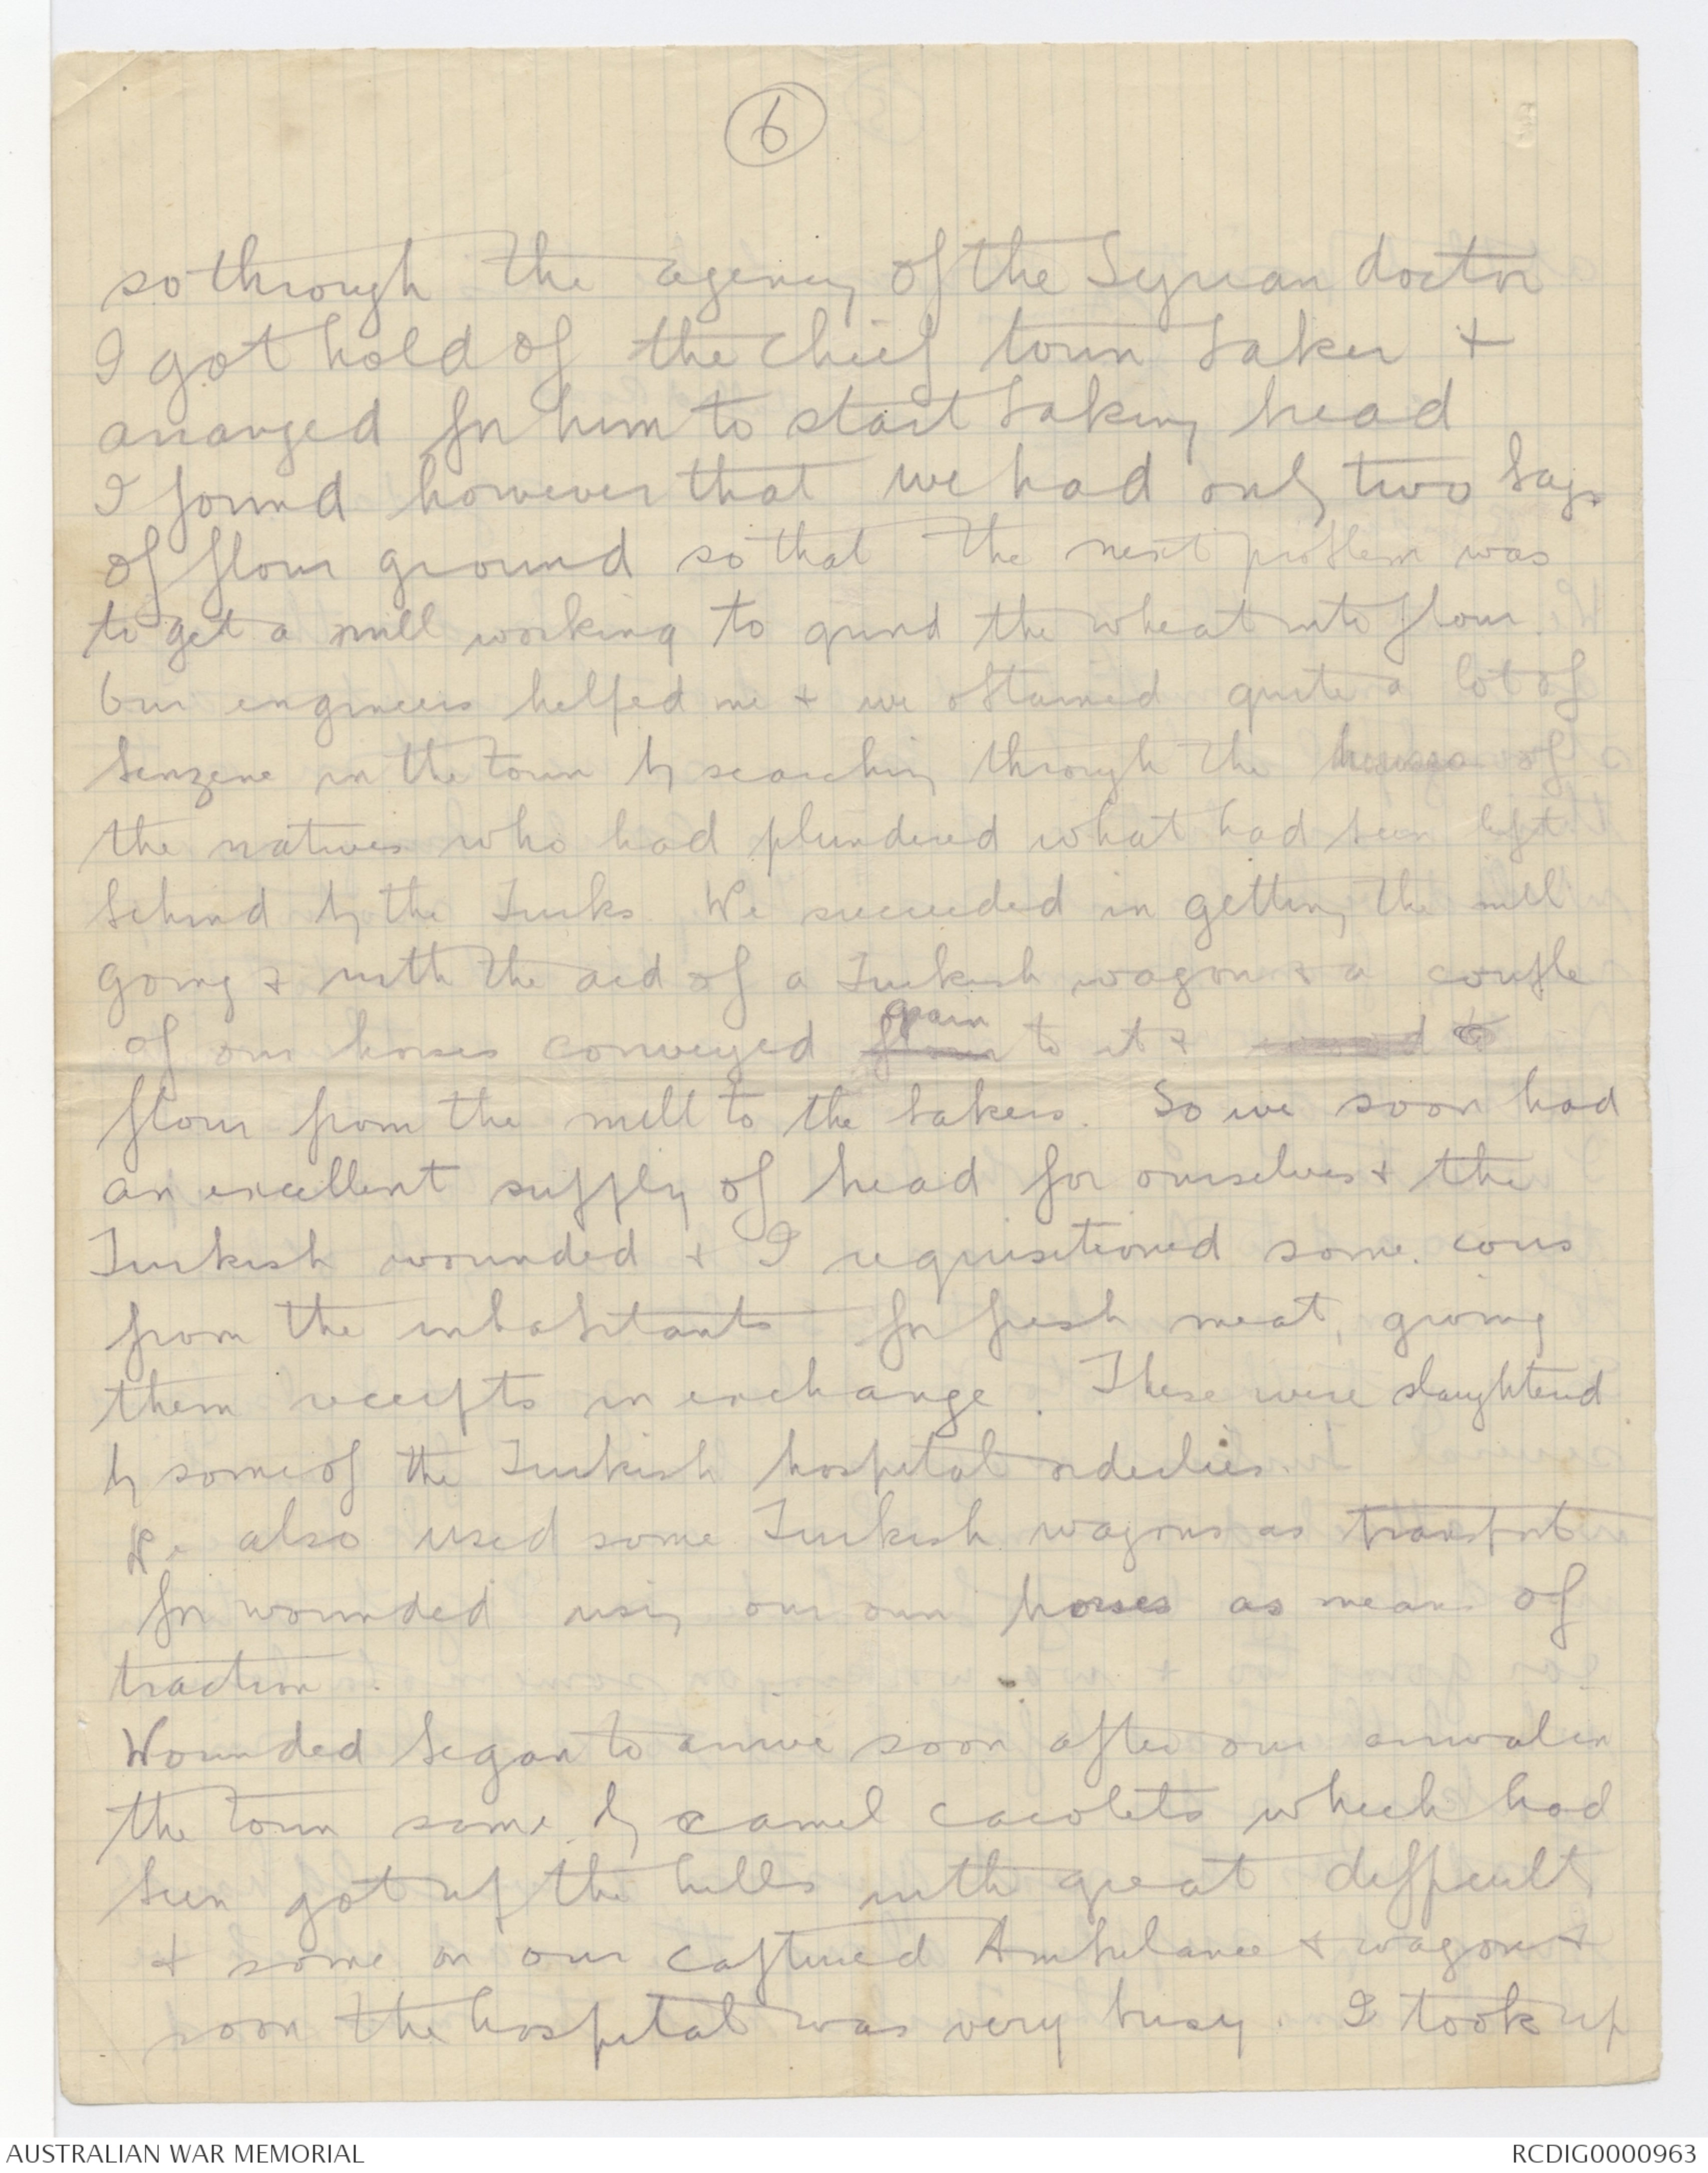 6
so through the agency of the Syrian doctor
I got hold of the chief town baker +
arranged for him to start baking bread
I found however that we had only two bags
of flour ground so that the next problem was
to get a mill working to grind the wheat into flour.
Our engineers helped me + we obtained quite a lot of
benzene in the town by searching through the houses of
the natives who had plundered what had been left
behind by the Turks. We succeeded in getting the mill
going + with the aid of a Turkish wagon + a couple
of our horses conveyed flour grain to it +
flour from the mill to the bakers. So we soon had
an excellent supply of bread for ourselves + the
Turkish wounded + I requisitioned some cows
from the inhabitants for fresh meat, giving
them receipts in exchange. These were slaughtered
by some of the Turkish hospital orderlies.
We also used some Turkish wagons as transport
for wounded using our own horses as means of
traction.
Wounded began to arrive soon after our arrival in
the town some by camel cacolets which had
been got up the hills with great difficulty
+ some on our captured Ambulance + wagon +
soon the hospital was very busy. I took up
AUSTRALIAN WAR MEMORIAL
RCDIG0000963